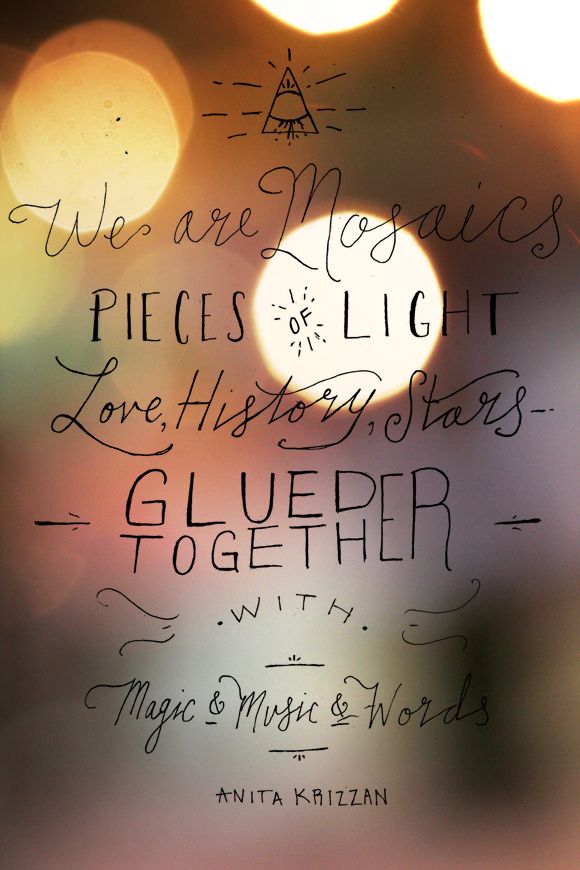 We are Mosaics
PIECES OF LIGHT
Love, History, Stars-
GLUED
TOGETHER
WITH
Magic & Music & Words
ANITA KRIZZAN